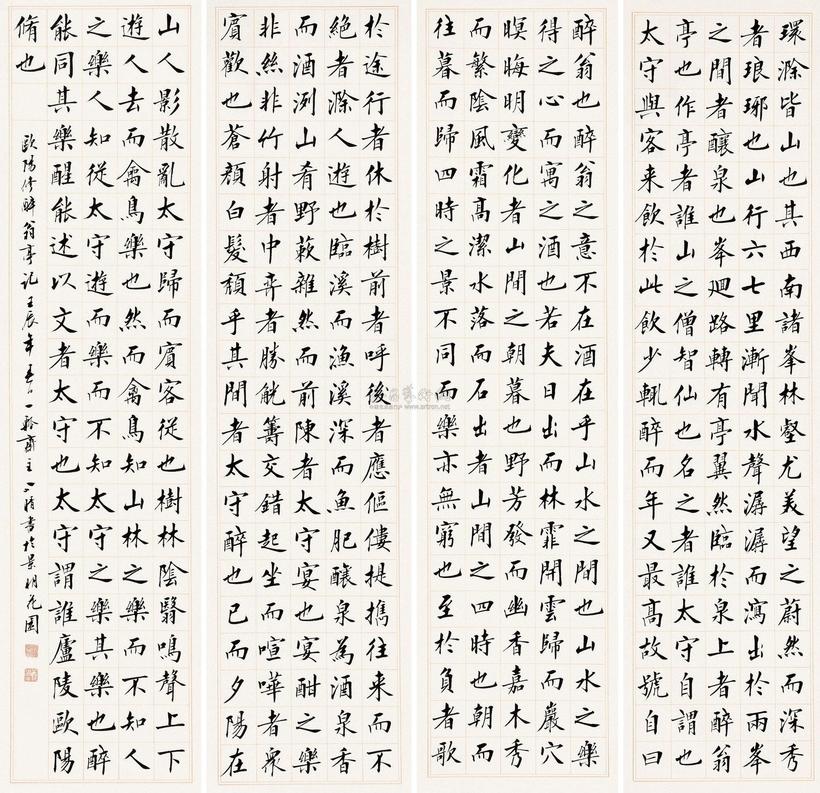 環滁皆山也其西南諸峯林壑尤美望之蔚然而深秀
者琅琊也山行六七里漸聞水聲潺潺而瀉出於兩峯
之間者釀泉也峯迴路轉有亭翼然臨於泉上者醉翁
亭也作亭者誰山之僧智仙也名之者誰太守自謂也
太守與客来飲於此飲少輒醉而年又最高故號自曰
醉翁也醉翁之意不在酒在乎山水之間也山水之樂
得之心而寓之酒也若夫日出而林霏開雲歸而巖穴
暝晦明變化者山間之朝暮也野芳發而幽香嘉木秀
而繁陰風霜高潔水落而石出者山間之四時也朝而
往暮而歸四時之景不同而樂亦無窮也至於負者歌
於途行者休於樹前者呼後者應傴僂提攜往来而不
絕者滁人遊也臨溪而漁溪深而魚肥釀泉為酒泉香
而酒洌山肴野蔌雜然而前陳者太守宴也宴酣之樂
非絲非竹射者中弈者勝觥籌交錯起坐而喧嘩者眾
賓歡也蒼顏白髮頹乎其間者太守醉也已而夕陽在
山人影散亂太守歸而賓客從也樹林陰翳鳴聲上下
遊人去而禽鳥樂也然而禽鳥知山林之樂而不知人
之樂人知從太守遊而樂而不知太守之樂其樂也醉
能同其樂醒能述以文者太守也太守謂誰廬陵歐陽
脩也
歐陽修醉翁亭記壬辰年一齋主書於景明花園
www.artron.net